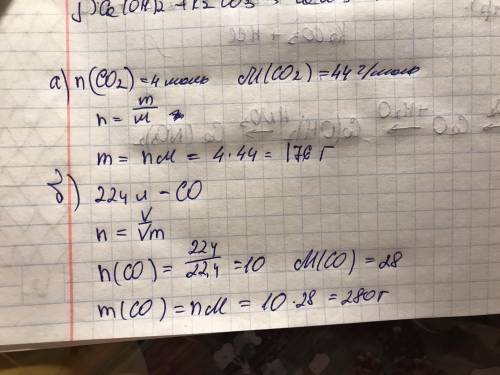 Ca(OH)2 +
а) n(CO2) = 4 моль M(CO2) = 44 г/моль
n = m/M
m = nM = 4·44 = 176 г
б) 224 л - CO
n = V/Vm
n(CO) = 224/22,4 = 10 M(CO) = 28
m(CO) = nM = 10·28 = 280г